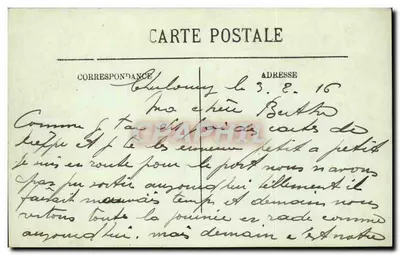 CARTE POSTALE
CORRESPONDANCE
ADRESSE
le 3. 8. 16
Ma chère Berthe
Comme je t'ai de cartes de
et je te les envoie petit a petit
Je suis en route pour le port nous n'avons
pas pu sortir aujourd'hui tellement il
faisait mauvais temps et demain nous
restons toute la journée en rade comme
aujourd'hui. mais demain c'est notre